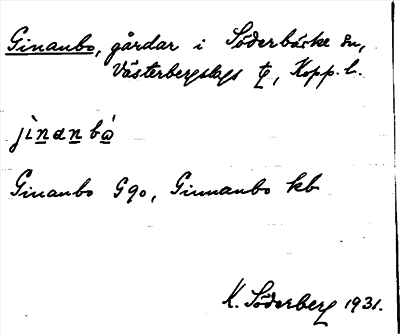 Ginanbo, gårdar i Söderbärke sn,
Västerbergslags tg, Kopp. l.
jìnanbò
Ginanbo G90, Ginnanbo kb
K. Söderberg 1931.